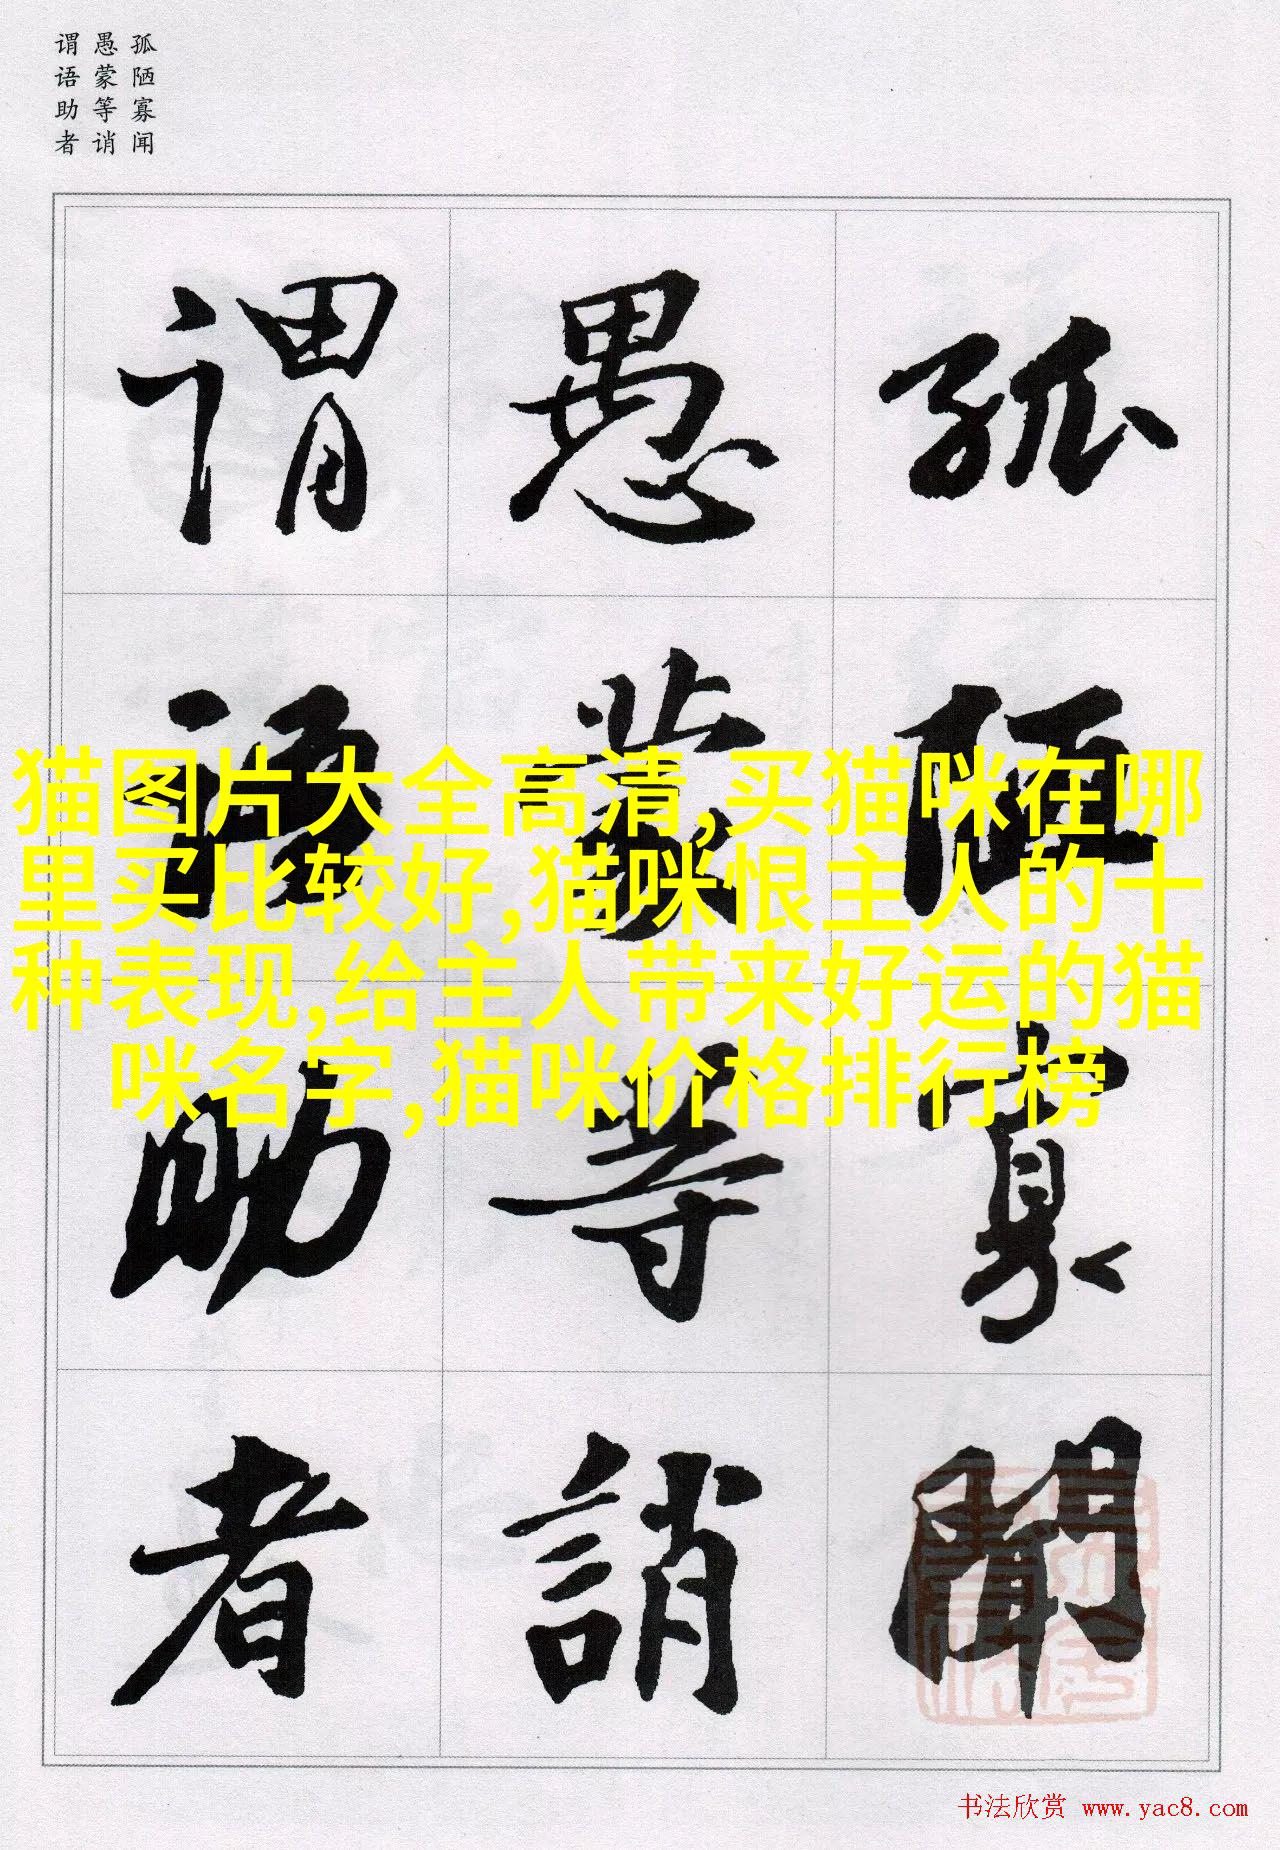 孤陋寡闻
愚蒙等诮
谓语助者
孤陋寡聞
愚蒙等誚
谓语助者
猫图片大全高清,买猫咪在哪
里买比较好,猫咪恨主人的十
种表现,给主人带来好运的猫
咪名字,猫咪价格排行榜
书法欣赏 www.yac8.com